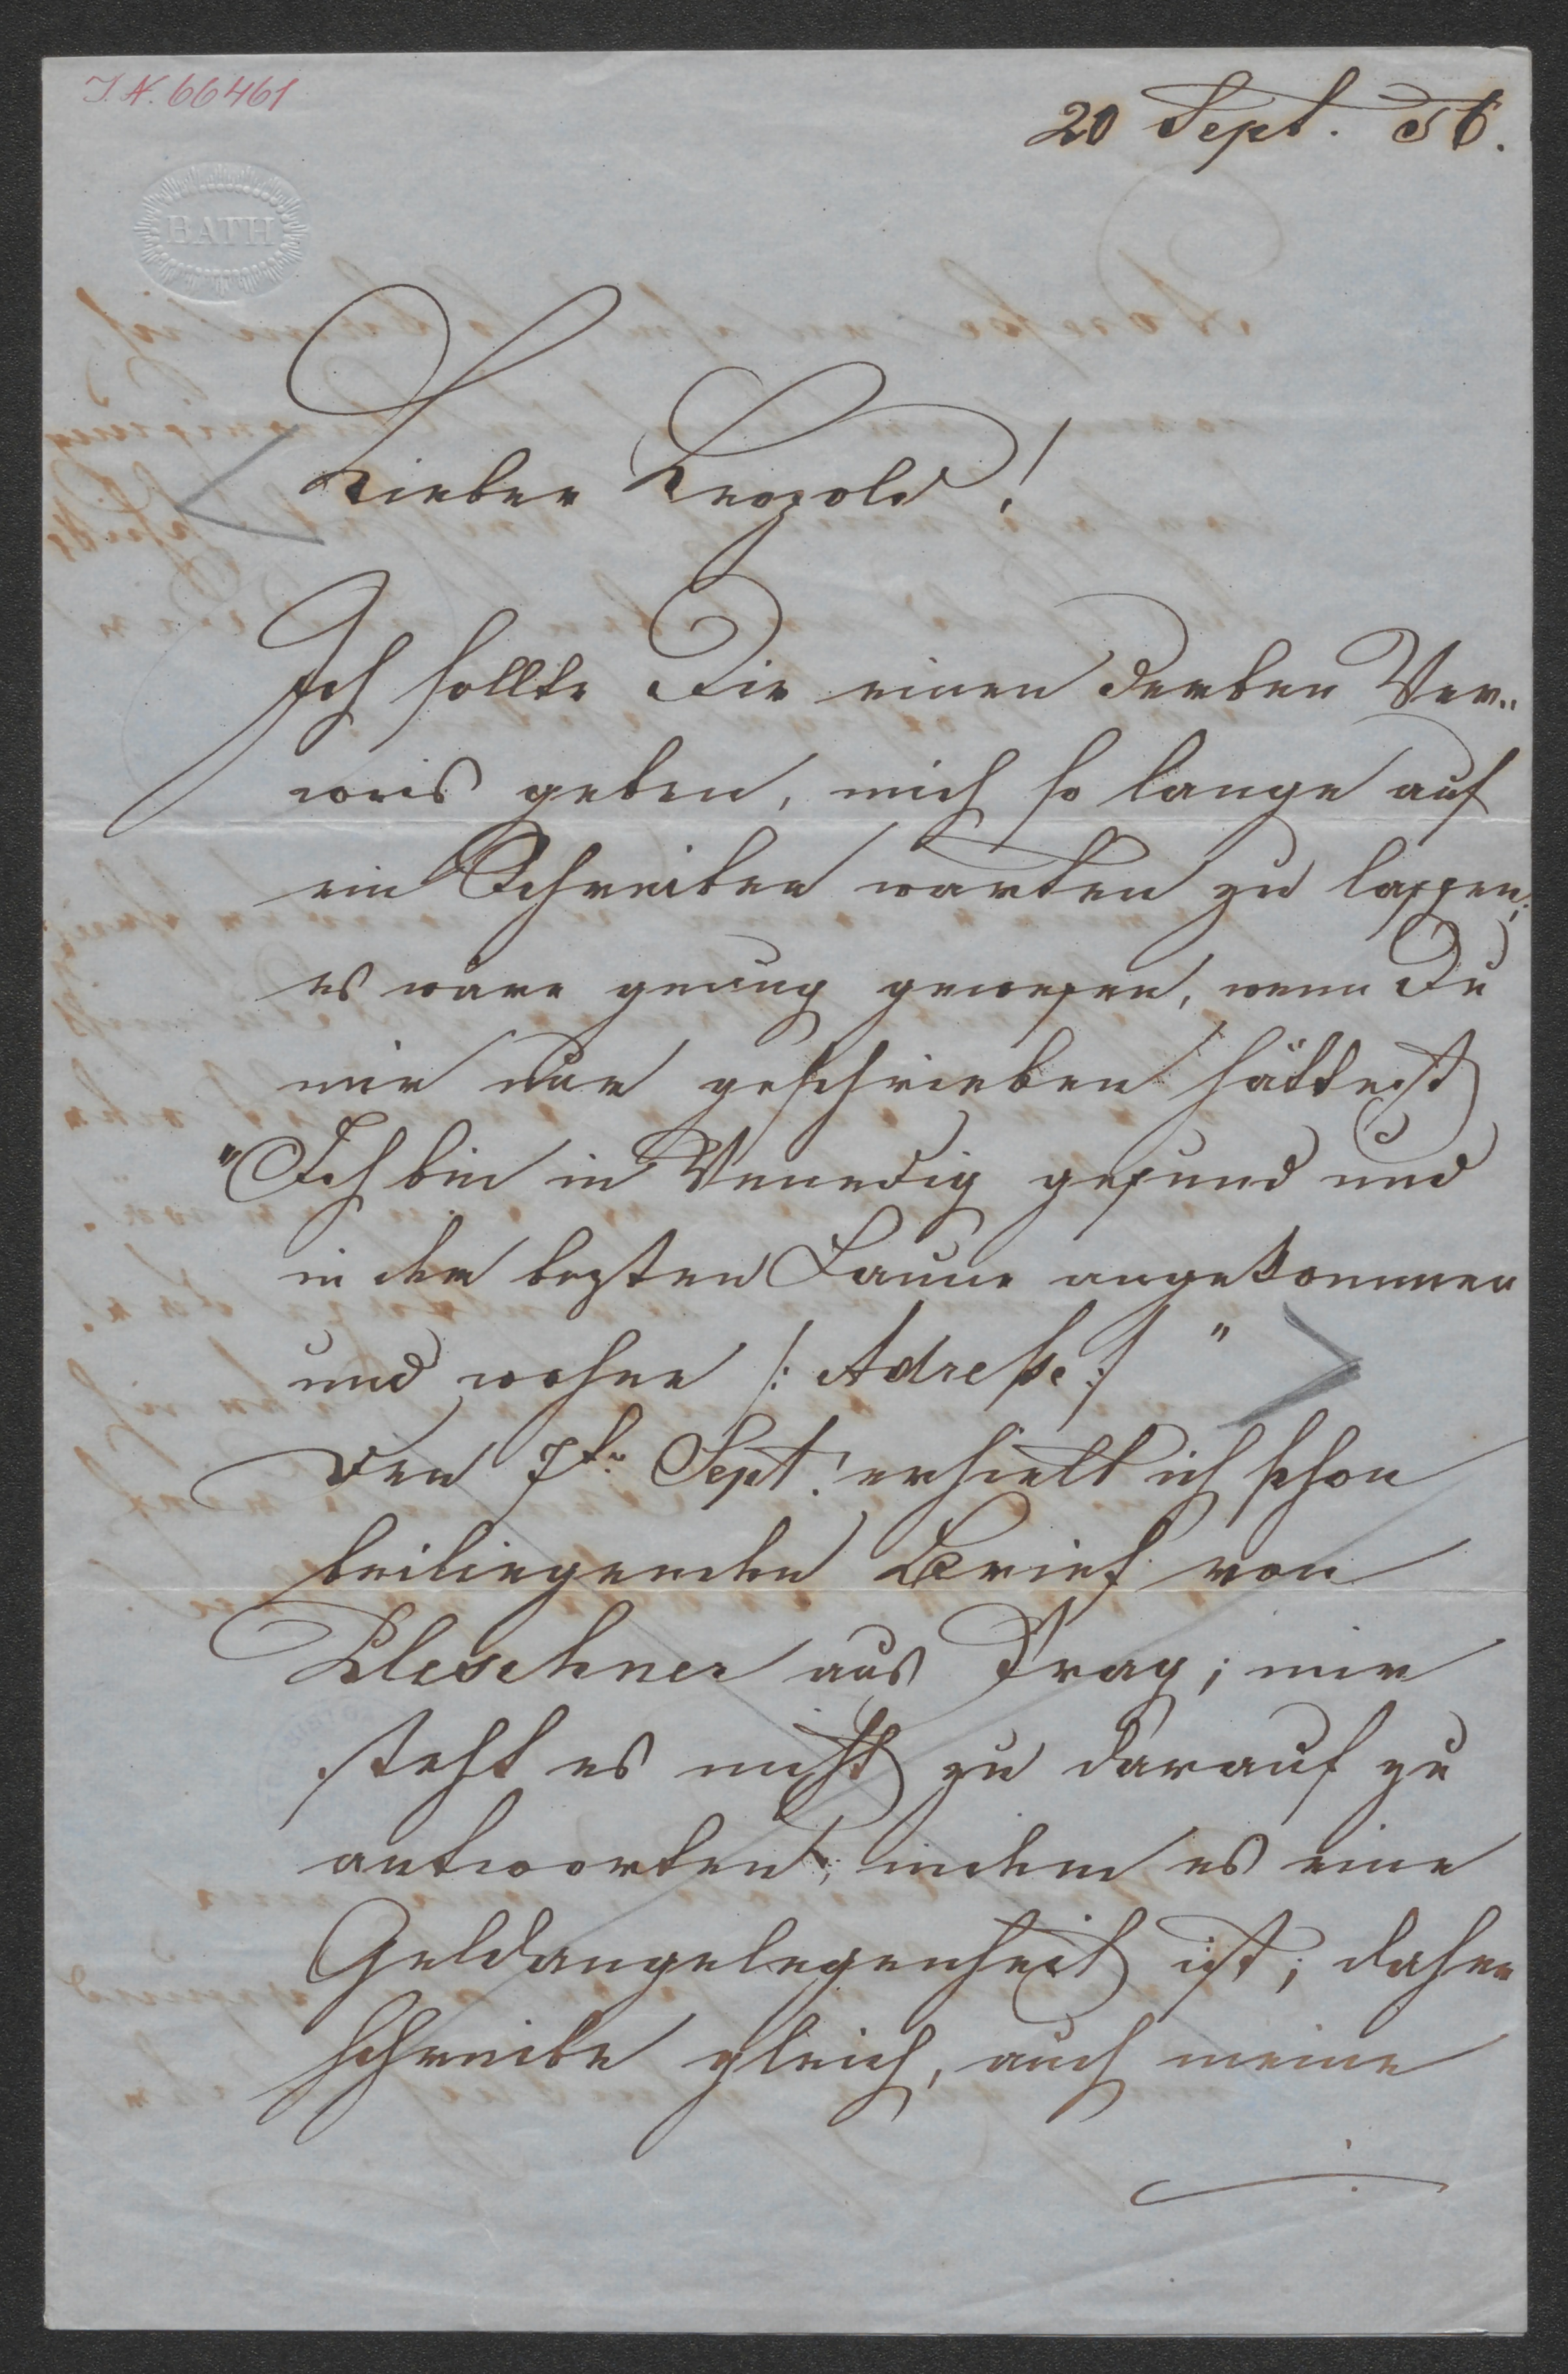 I. N. 66461
20 Sept. 56.
BATH
Lieber Leopold!
Ich sollte Dir einen derben Ver„
weis geben, mich so lange auf
ein Schreiben warten zu lassen;
es wäre genug gewesen, wenn Du
mir nur geschrieben hättest
"Ich bin in Venedig gesund und
in der besten Laune angekommen
und wohne /: Adresse :/ "
Den 7t: Sept. erhielt ich schon
beiliegenden Brief von
Pleschner aus Prag; mir
steht es nicht zu darauf zu
antworten, indem es eine
Geldangelegenheit ist; daher
schreibe gleich, auch meine